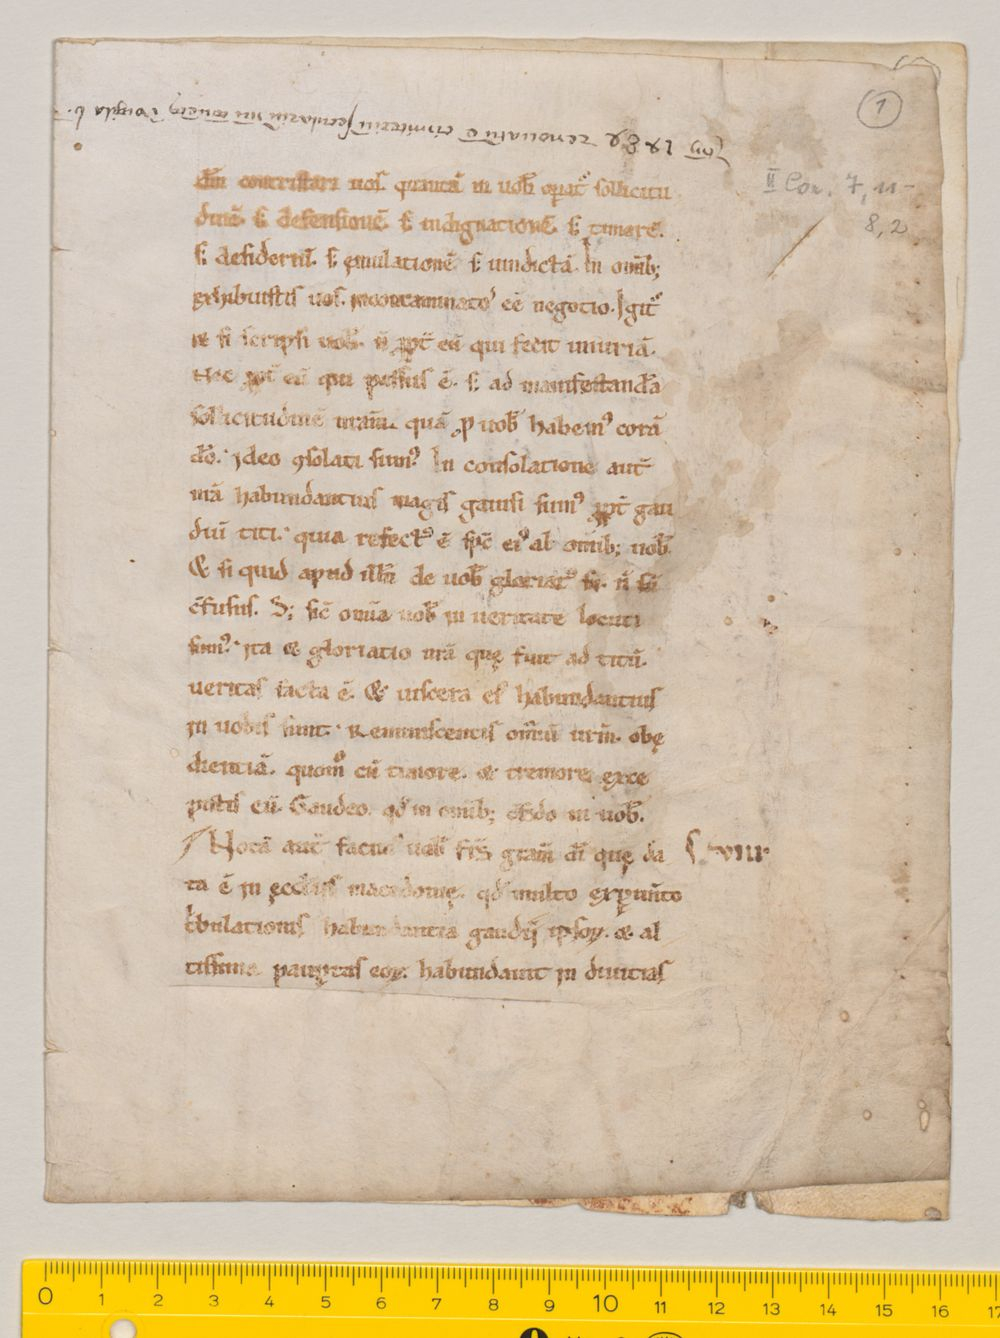 1
II Cor. 7, 11 -
8, 2
dm̄ contristari uos quantā in uob̄ operat᷑ sollicitu
dinē. s; defensionē. s; indignationē. s; timorē.
s; desideriū. s; ęmulationē s; uindictā. In omib;
exhibuistis uos. incontaminatoꝰ eē negotio. Igit᷑
& si scripsi uob̄. n̄ ꝓpt̄ eū qui fecit iniuriā.
Nec ꝓpt̄ eū qui passus ē. s; ad manifestandā
sollicitudinē nr̄am. quā ꝓ uob̄ habemꝰ corā
dō. Ideo ꝯsolati sumꝰ. In consolatione aut̄
nr̄a habundantius magis gauisi sumꝰ ꝓpt̄ gau
diū titi. quia refectꝰ ē sp̄c eiꝰ ab omib; uob̄.
& si quid apud illū de uob̄ gloriatꝰ sū. n̄ sū
ꝯfusus. S; sic̄ omīa uob̄ in ueritate locuti
sumꝰ. ita & gloriatio nr̄a quę fuit ad titū.
ueritas facta ē. & uiscera eiꝰ habundantius
in uobis sunt. Reminiscentis omīū ur̄m. obę
dientiā. quom̊ cū timore. & tremore exce
pistis eū. Gaudeo. qd̄ in omib; ꝯfido in uob̄.
Notā aut̄ facimꝰ uob̄ fr̄s gratiā dī quę da
ta ē in ęcclīis macedonię. qd̄ multo exp̱im̄to
tͥbulationis habundantia gaudij ipsoꝝ. & al
tissima paup̱tas eoꝝ. habundauit in diuitias